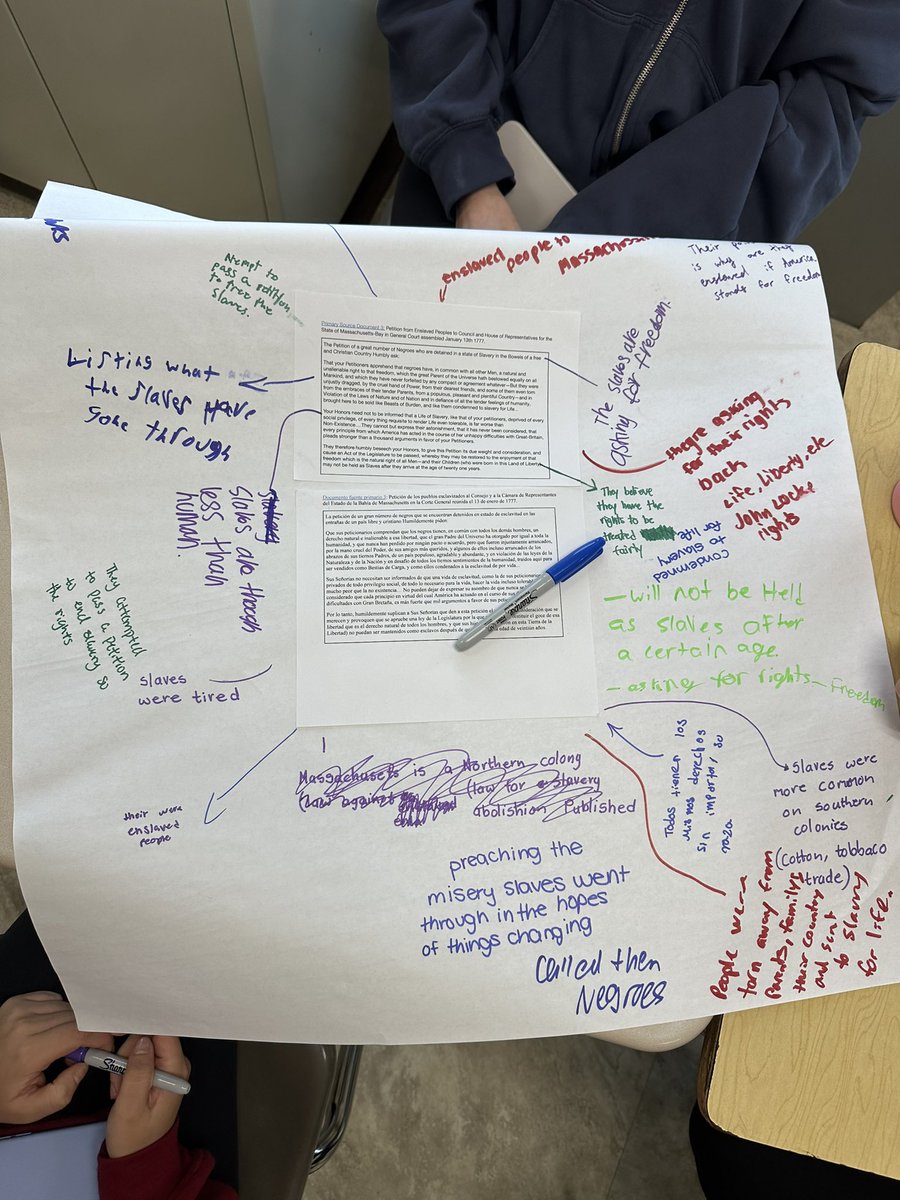 enslaved people to
Massachuse
Their
is why are they
enslaved if America
stands for freedom
Attempt to
pass a petition
to free the
slaves.
Listing what
the slaves have
gone through
Slaves are though
less than
human.
They attempted
to pass a petition
to end slavery so
the rights
slaves
were tired
their were
enslaved
people
Primary Source Document 3: Petition from Enslaved Peoples to Council and House of Representatives for the
State of Massachusetts-Bay in General Court assembled January 13th 1777.
The Petition of a great number of Negroes who are detained in a state of Slavery in the Bowels of a free
and Christian Country Humbly ask:
That your Petitioners apprehend that negroes have, in common with all other Men, a natural and
unalienable right to that freedom, which the great Parent of the Universe hath bestowed equally on all
Mankind, and which they have never forfeited by any compact or agreement whatever – But they were
unjustly dragged, by the cruel hand of Power, from their dearest friends, and some of them even torn
from the embraces of their tender Parents, from a populous, pleasant and plentiful Country – and in
Violation of the Laws of Nature and of Nation and in defiance of all the tender feelings of humanity,
brought here to be sold like Beasts of Burden, and like them condemned to slavery for Life...
Your Honors need not to be informed that a Life of Slavery, like that of your petitioners, deprived of every
social privilege, of every thing requisite to render Life even tolerable, is far worse than
Non-Existence... They cannot but express their astonishment, that it has never been considered, that
every principle from which America has acted in the course of her unhappy difficulties with Great-Britain,
pleads stronger than a thousand arguments in favor of your Petitioners.
They therefore humbly beseech your Honors, to give this Petition its due weight and consideration, and
cause an Act of the Legislature to be passed, whereby they may be restored to the enjoyment of that
freedom which is the natural right of all Men – and their Children (who were born in this Land of Liberty)
may not be held as Slaves after they arrive at the age of twenty one years.
Documento fuente primario 3: Petición de los pueblos esclavizados al Consejo y a la Cámara de Representantes
del Estado de la Bahía de Massachusetts en la Corte General reunida el 13 de enero de 1777.
La petición de un gran número de negros que se encuentran detenidos en estado de esclavitud en las
entrañas de un país libre y cristiano Humildemente piden:
Que sus peticionarios comprendan que los negros tienen, en común con todos los demás hombres, un
derecho natural e inalienable a esa libertad, que el gran Padre del Universo ha otorgado por igual a toda la
humanidad, y que nunca han perdido por ningún pacto o acuerdo, pero que fueron injustamente arrancados,
por la mano cruel del Poder, de sus amigos más queridos, y algunos de ellos incluso arrancados de los
abrazos de sus tiernos Padres, de un país populoso, agradable y abundante, y en violación de las leyes de la
Naturaleza y de la Nación y en desafío de todos los tiernos sentimientos de la humanidad, traídos aquí para
ser vendidos como Bestias de Carga, y como ellos condenados a la esclavitud de por vida...
Sus Señorías no necesitan ser informados de que una vida de esclavitud, como la de sus peticionarios,
privados de todo privilegio social, de todo lo necesario para
mucho peor que la no existencia... No pueden dejar de expresar su asombro de que nunca
considerado que cada principio en virtud del cual América ha actuado en el curso de sus
dificultades con Gran Bretaña, es más fuerte que mil argumentos a favor de sus
Por lo tanto, humildemente suplican a Sus Señorías que den a esta petición
merecen y provoquen que se apruebe una ley de la Legislatura por la que
libertad que es el derecho natural de todos los hombres, y que sus
Libertad) no pueden ser mantenidos como esclavos después de edad de veintiún años.
The slaves are
asking for freedom.
they're asking
for their rights
back
Life, Liberty, etc
John Locke
rights
They believe
they have the
rights to be
treated
fairly
condemned
to slavery
for life
- will not be Held
as slaves after
a certain age.
- asking for rights - Freedom
Todos tienen los
mismos derechos
sin importar su
raza
slaves were
more common
on southern
colonies
(cotton, tobbaco
trade)
People were
torn away from
Parents, family,
their country
and sent
to slavery
for life.
Massachusets is a Northern colony
(law against (law for slavery
abolishion Published
preaching the
misery slaves went
through in the hopes
of things changing
called then
Negroes
Sharpie